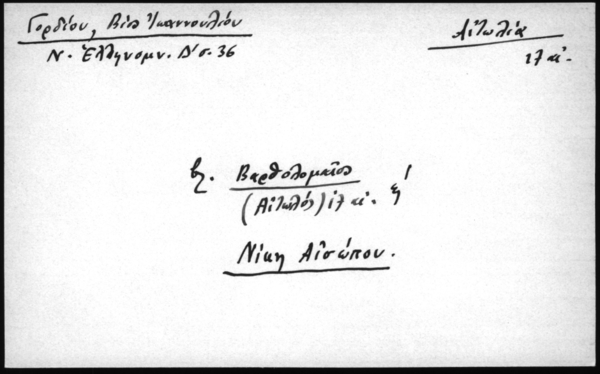 Γορδίου, Βίος Γιαννουλίου
Ν. Ἑλληνομν. Δ' σ. 36
Αἰτωλία
17 αἰ.
βλ. Βαρθολομαῖος
(Αἰτωλός) 17 αἰ. ἤ
Νίκη Αἰσώπου.